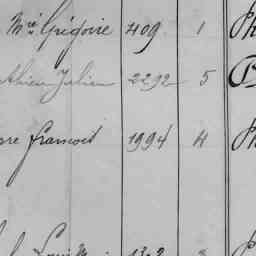 Mre Grégoire 409 1 Ph
thieu Julien 2292 5
rre francois 1994 4 Ph